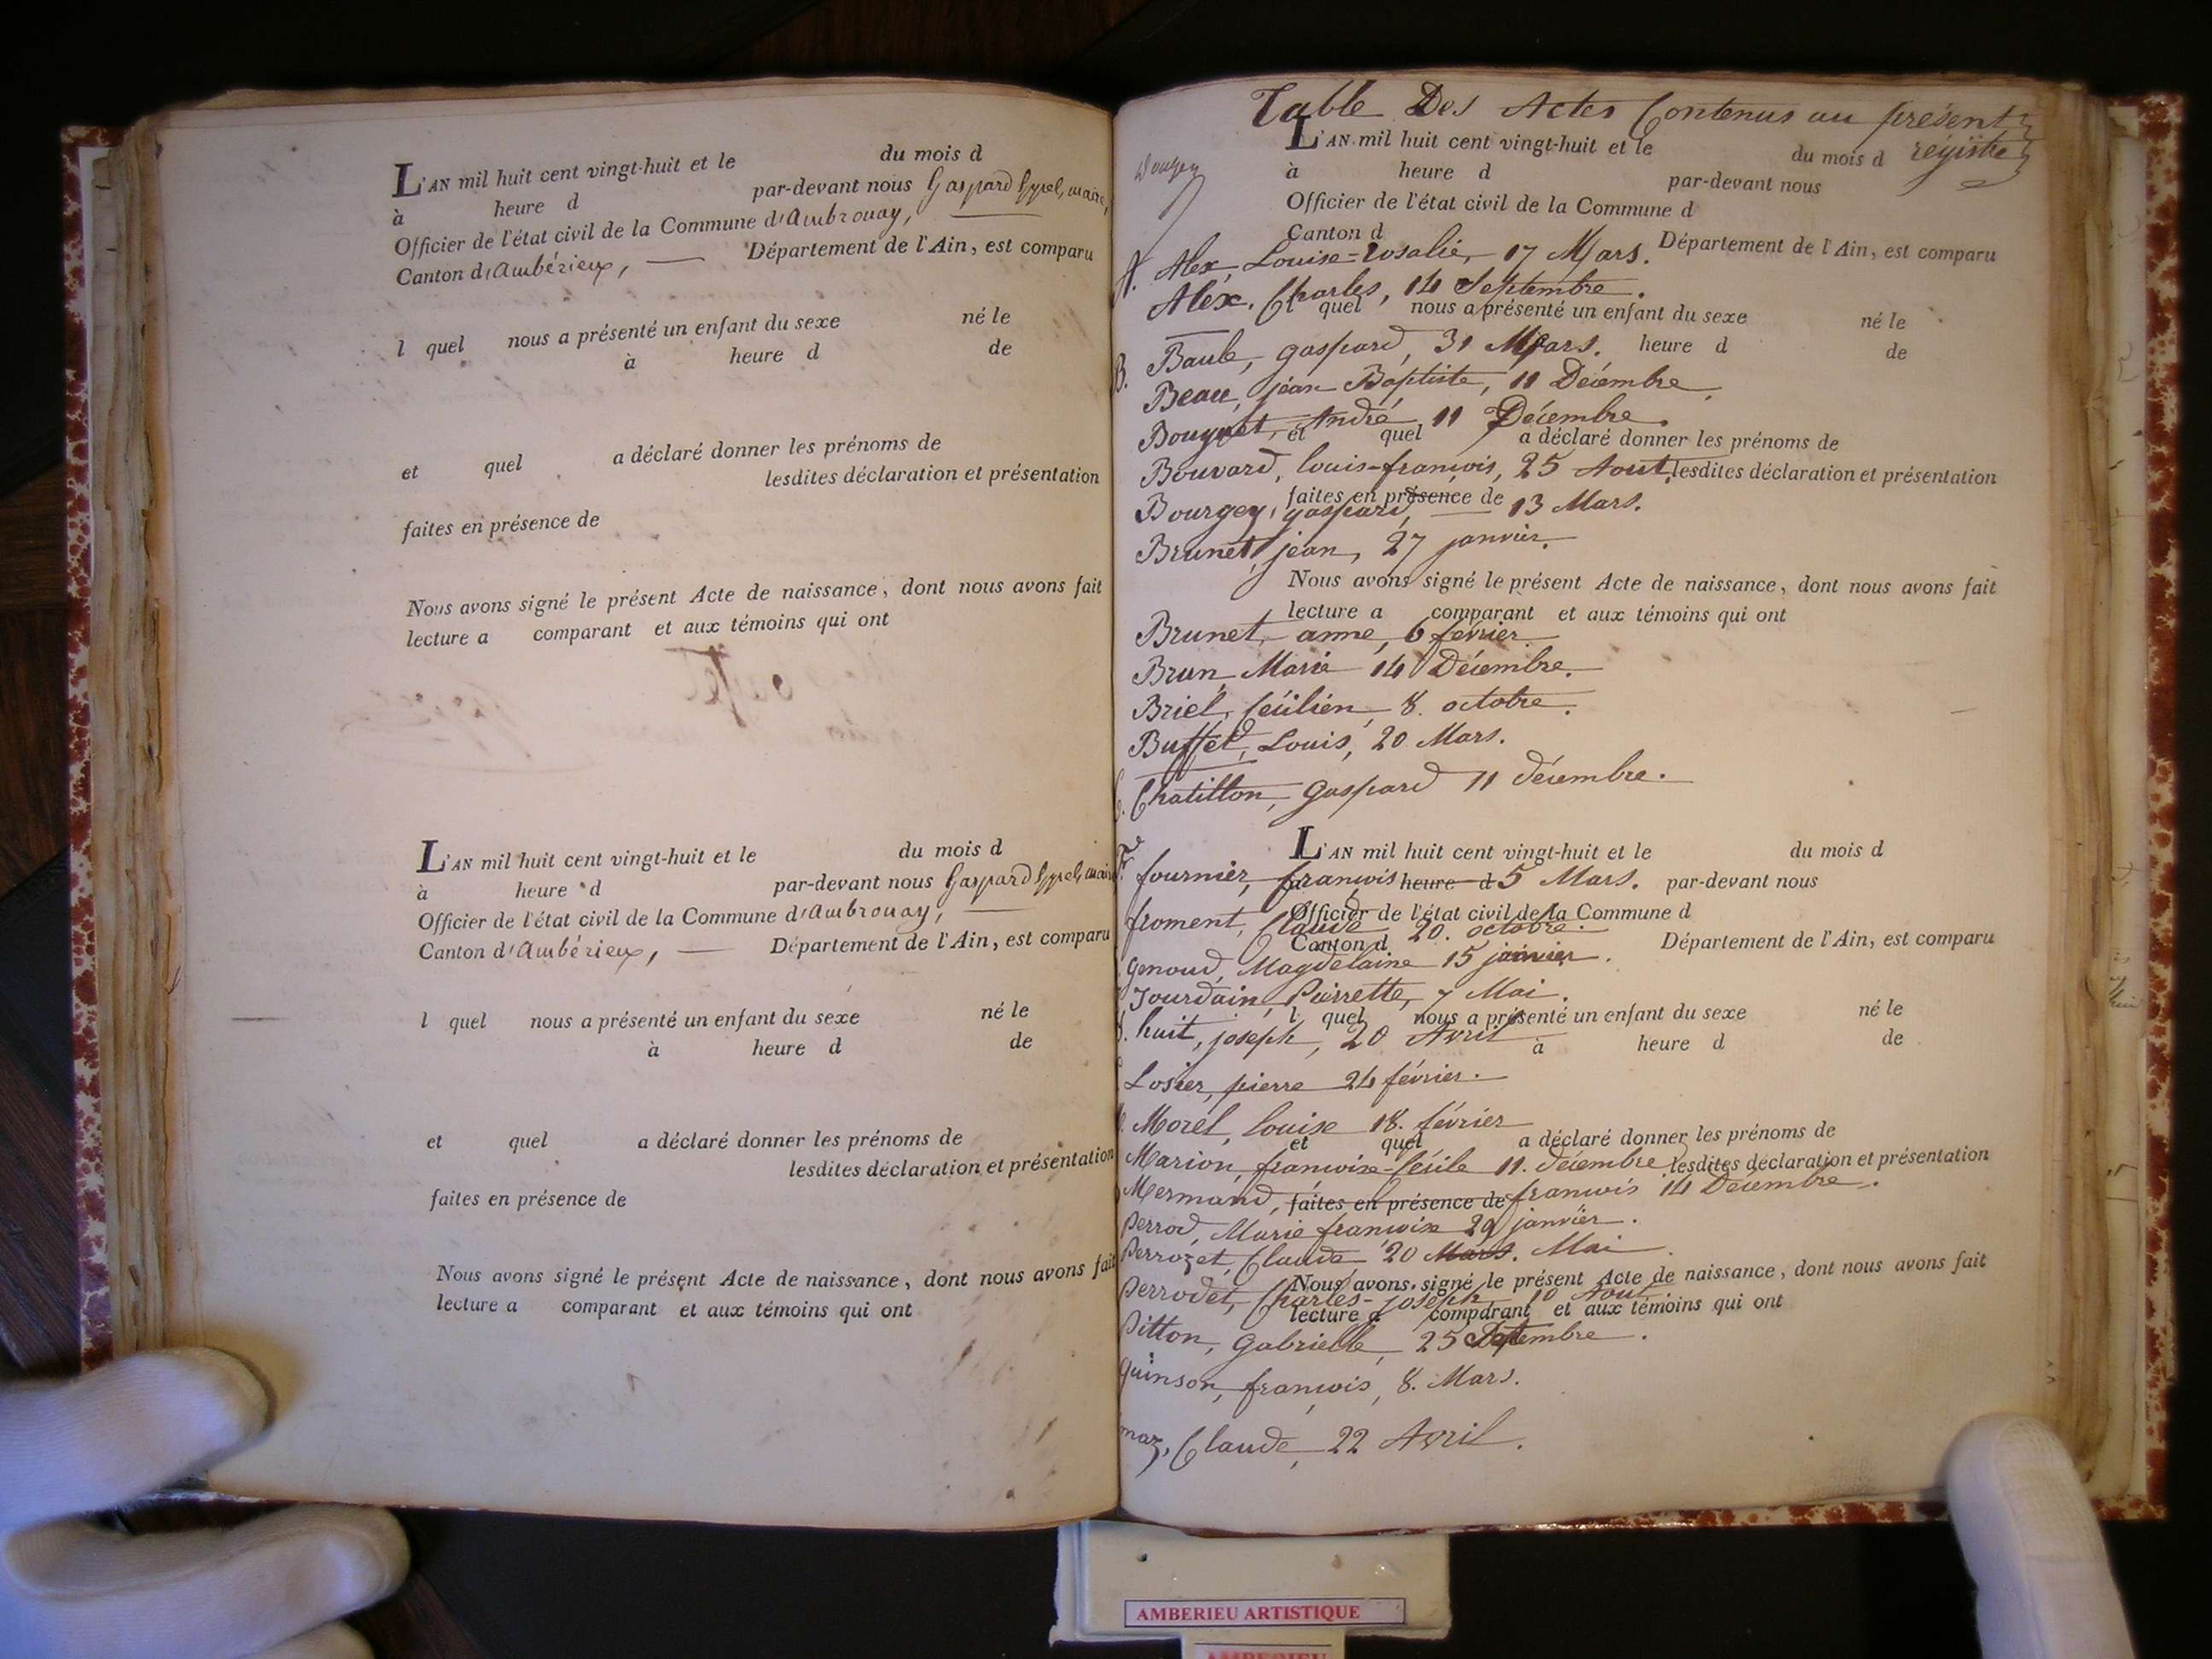 L'AN mil huit cent vingt-huit et le du mois d
à heure d par-devant nous Gaspard maire,
Officier de l'état civil de la Commune d'Ambronay,
Canton d'Ambérieux, Département de l'Ain, est comparu
l quel nous a présenté un enfant du sexe né le
à heure d de
et quel a déclaré donner les prénoms de
lesdites déclaration et présentation
faites en présence de
Nous avons signé le présent Acte de naissance, dont nous avons fait
lecture a comparant et aux témoins qui ont
L'AN mil huit cent vingt-huit et le du mois d
à heure d par-devant nous Gaspard
Officier de l'état civil de la Commune d'Ambronay,
Canton d'Ambérieux, Département de l'Ain, est comparu
l quel nous a présenté un enfant du sexe né le
à heure d de
et quel a déclaré donner les prénoms de
lesdites déclaration et présentation
faites en présence de
Nous avons signé le présent Acte de naissance, dont nous avons fait
lecture a comparant et aux témoins qui ont
Table Des Actes Contenus au présent
registre
L'AN mil huit cent vingt-huit et le du mois d
à heure d par-devant nous
Officier de l'état civil de la Commune d
Canton d Département de l'Ain, est comparu
A. Alex, Louise-rosalie, 17 Mars.
Alex, Charles, 14 Septembre.
l quel nous a présenté un enfant du sexe né le
B. Baule, gaspard, 31 Mars. heure d de
Beau, jean Baptiste, 11 Décembre.
Bouguet, André 11 Décembre.
et quel a déclaré donner les prénoms de
Bouvard, louis-françois, 25 Aout. lesdites déclaration et présentation
faites en présence de
Bourgey, gaspard, 13 Mars.
Brunet, jean, 27 janvier.
Nous avons signé le présent Acte de naissance, dont nous avons fait
lecture a comparant et aux témoins qui ont
Brunet, anne, 6 février
Brun, Marie 14 Décembre.
Briel, 8. octobre.
Buffet, Louis, 20 Mars.
C. Chatillon, Gaspard 11 décembre.
L'AN mil huit cent vingt-huit et le du mois d
F. fournier, françois heure d 5 Mars. par-devant nous
Officier de l'état civil de la Commune d
froment, Claude 20. octobre.
Canton d Département de l'Ain, est comparu
genoud, Magdelaine 15 janvier.
Jourdain, Pierrette, 7 Mai.
l quel nous a présenté un enfant du sexe né le
huit, joseph, 20 Avril à heure d de
Losier, pierre 24 février.
Morel, louise 18. février
et quel a déclaré donner les prénoms de
Marion, françoise-Cécile 11. décembre lesdites déclaration et présentation
Mermand, faites en présence de françois 14 Décembre.
Perrod, Marie françoise 29 janvier.
Perrozet, Claude, 20 Mars. Mai
Nous avons signé le présent Acte de naissance, dont nous avons fait
Perrodet, Charles-joseph 10 Aout
lecture a comparant et aux témoins qui ont
Pitton, Gabrielle, 25 Septembre.
Quinson, françois, 8. Mars.
Claude, 22 Avril.
AMBERIEU ARTISTIQUE
AMBERIEU